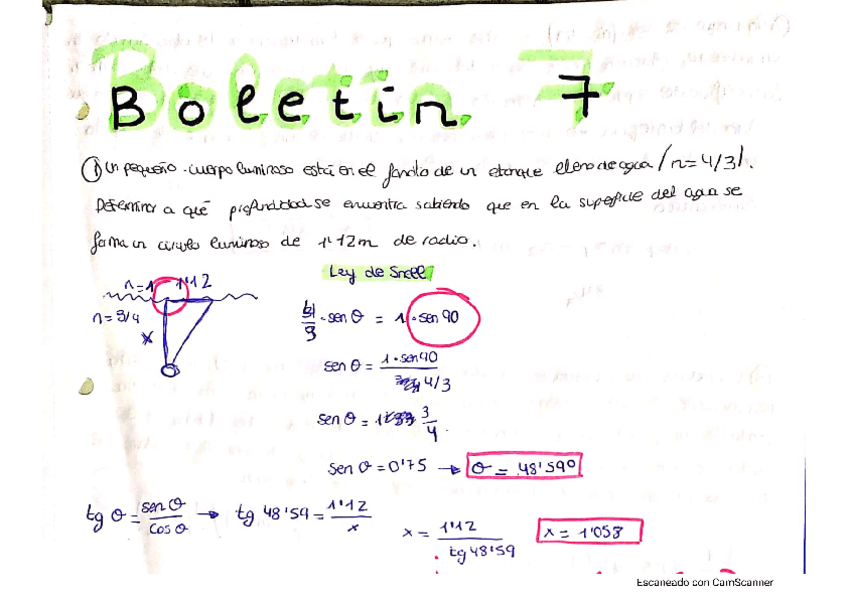 Boletin 7
① Un pequeño cuerpo luminoso está en el fondo de un estanque lleno de agua (n=4/3).
Determinar a qué profundidad se encuentra sabiendo que en la superficie del agua se
forma un circulo luminoso de 1'12m de radio.
Ley de Snell
n=1 1'12
n=3/4
x
4/3 · sen θ = 1 · sen 90
sen θ = 1 · sen 90 / 4/3
sen θ = 1 3/4
sen θ = 0'75 → θ = 48'59º
tg θ = sen θ / cos θ → tg 48'59 = 1'12 / x
x = 1'12 / tg 48'59
x = 1'058
Escaneado con CamScanner